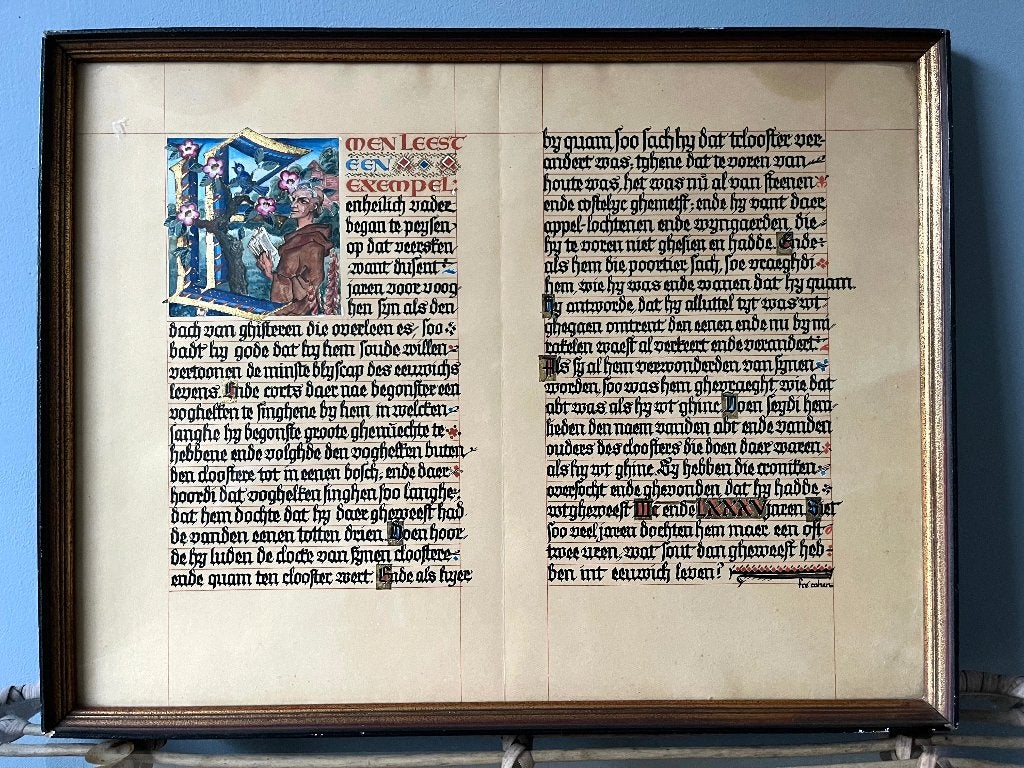 MEN LEEST
EEN
EXEMPEL:
enheilich vader
began te peysen
op dat veersken
want dusent
jaren voor voog
hen syn als den
dach van ghisteren die overleen es soo
badt hy gode dat hy hem soude willen
vertoonen de minste blyscap des eeuwichs
levens. Ende corts daer nae begonster een
voghelken te singhene by hem in welcken
sanghe hy begonste groote ghenuechte te
hebbene ende volghde den voghelken buten
den cloostere tot in eenen bosch, ende daer
hoordi dat voghelken singhen soo langhe,
dat hem dochte dat hy daer gheweest had
de vanden eenen totten drien. Doen hoor
de hy luden de clocke van synen cloostere
ende quam ten clooster wert: Ende als hyer
by quam soo sach hy dat tclooster ver-
andert was, tghene dat te voren van
houte was, het was nu al van steenen
ende costelyc ghemetst; ende hy vant daer
appel-lochtenen ende wyngaerden, die
hy te voren niet ghesien en hadde. Ende
als hem die poortier sach, soe vraeghdi
hem, wie hy was ende wanen dat hy quam.
Hy antworde, dat hy alluttel tyt was wt
ghegaen omtrent den eenen ende nu by m
rakelen waest al verkeert ende verandert.
Als sy al hem verwonderden van synen
worden, soo was hem ghevraeght wie dat
abt was als hy wt ghinc. Doen seydi hem
lieden den naem vanden abt ende vanden
ouders des cloosters die doen daer waren
als hy wt ghinc. Sy hebben die croniken
oversocht ende ghevonden, dat hy hadde
wtgheweest IIIc ende LXXXV jaren. Siet
soo veel jaren dochten hem maer een oft
twee uren, wat sout dan gheweest heb-
ben int eeuwich leven?
fré cohen